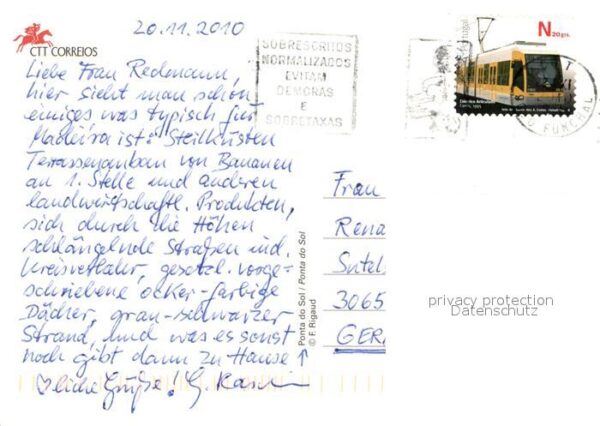 20.11.2010
CTT CORREIOS
SOBRESCRITOS
NORMALIZADOS
EVITAM
DEMORAS
E
SOBRETAXAS
Portugal
N20grs.
FUNCHAL
Liebe Frau Redmann,
hier sieht man schon
einiges was typisch für
Madeira ist: Steilküsten
Terrassenanbau von Bananen
an 1. Stelle und anderen
landwirtschaftl. Produkten,
sich durch die Höhen
schlängelnde Straßen incl.
Kreisverkehr, gesetzl. vorge=
schriebene ocker-farbige
Dächer, grau-schwarzer
Strand, und was es sonst
noch gibt dann zu Hause ↑
♡liche Grüße! G.
Ponta do Sol / Ponta do Sol
© F. Rigaud
Frau
Rena
Sutel
3065
GERM
privacy protection
Datenschutz